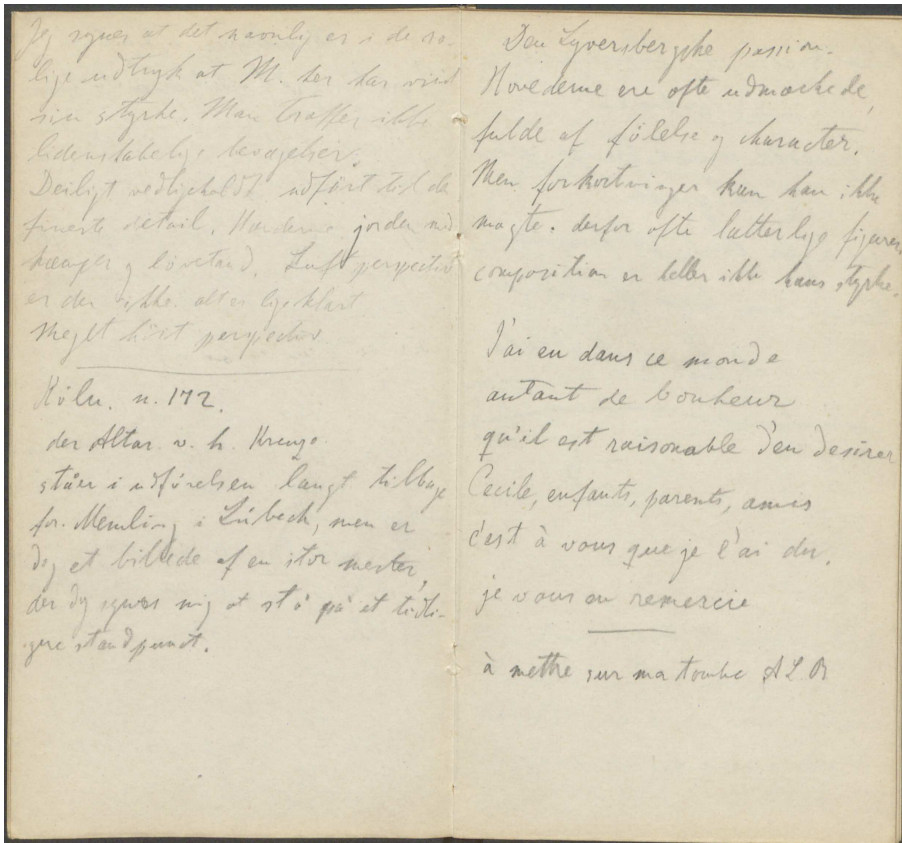 Jeg synes at det navnlig er i de ro-
lige udtryk at M. her har vist
sin styrke. Man træffer ikke
lidenskabelige bevægelser.
Deiligt vedligeholdt udfört til de
fineste detail. jorden med
og løvetand. Luftperspectiv
er der ikke. alt er lige klart
Meget perspectiv
Köln. n. 172.
der Altar v. h. Kreuze.
ståer i udförelsen langt tilbage
for Memling i Lübeck, men er
dog et billede af en stor mester,
der dog synes mig at stå på et tidli-
gere standpunct.
Den Lyversbergske passion.
Hovederne ere ofte udmærkede,
fulde af følelse og character.
Men forkortninger kan han ikke
magte. derfor ofte latterlige figurer,
composition er heller ikke hans styrke.
J'ai eu dans ce monde
autant de bonheur
qu'il est raisonable d'en desirer
Cecile, enfants, parents, amis
c'est à vous que je l'ai du,
je vous en remercie
à mettre sur ma tombe